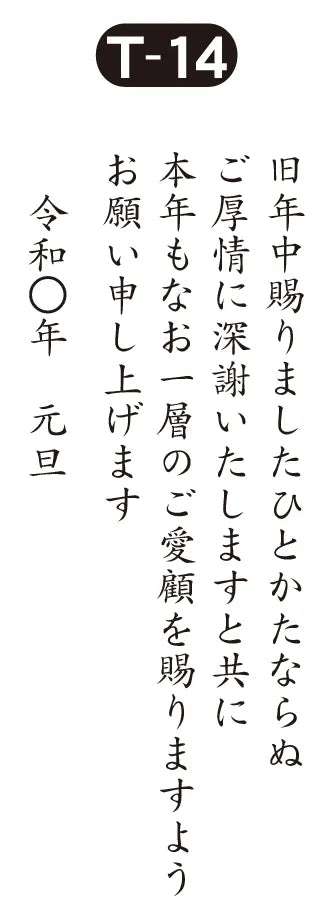 T-14
旧年中賜りましたひとかたならぬ
ご厚情に深謝いたしますと共に
本年もなお一層のご愛顧を賜りますよう
お願い申し上げます
令和〇年　元旦